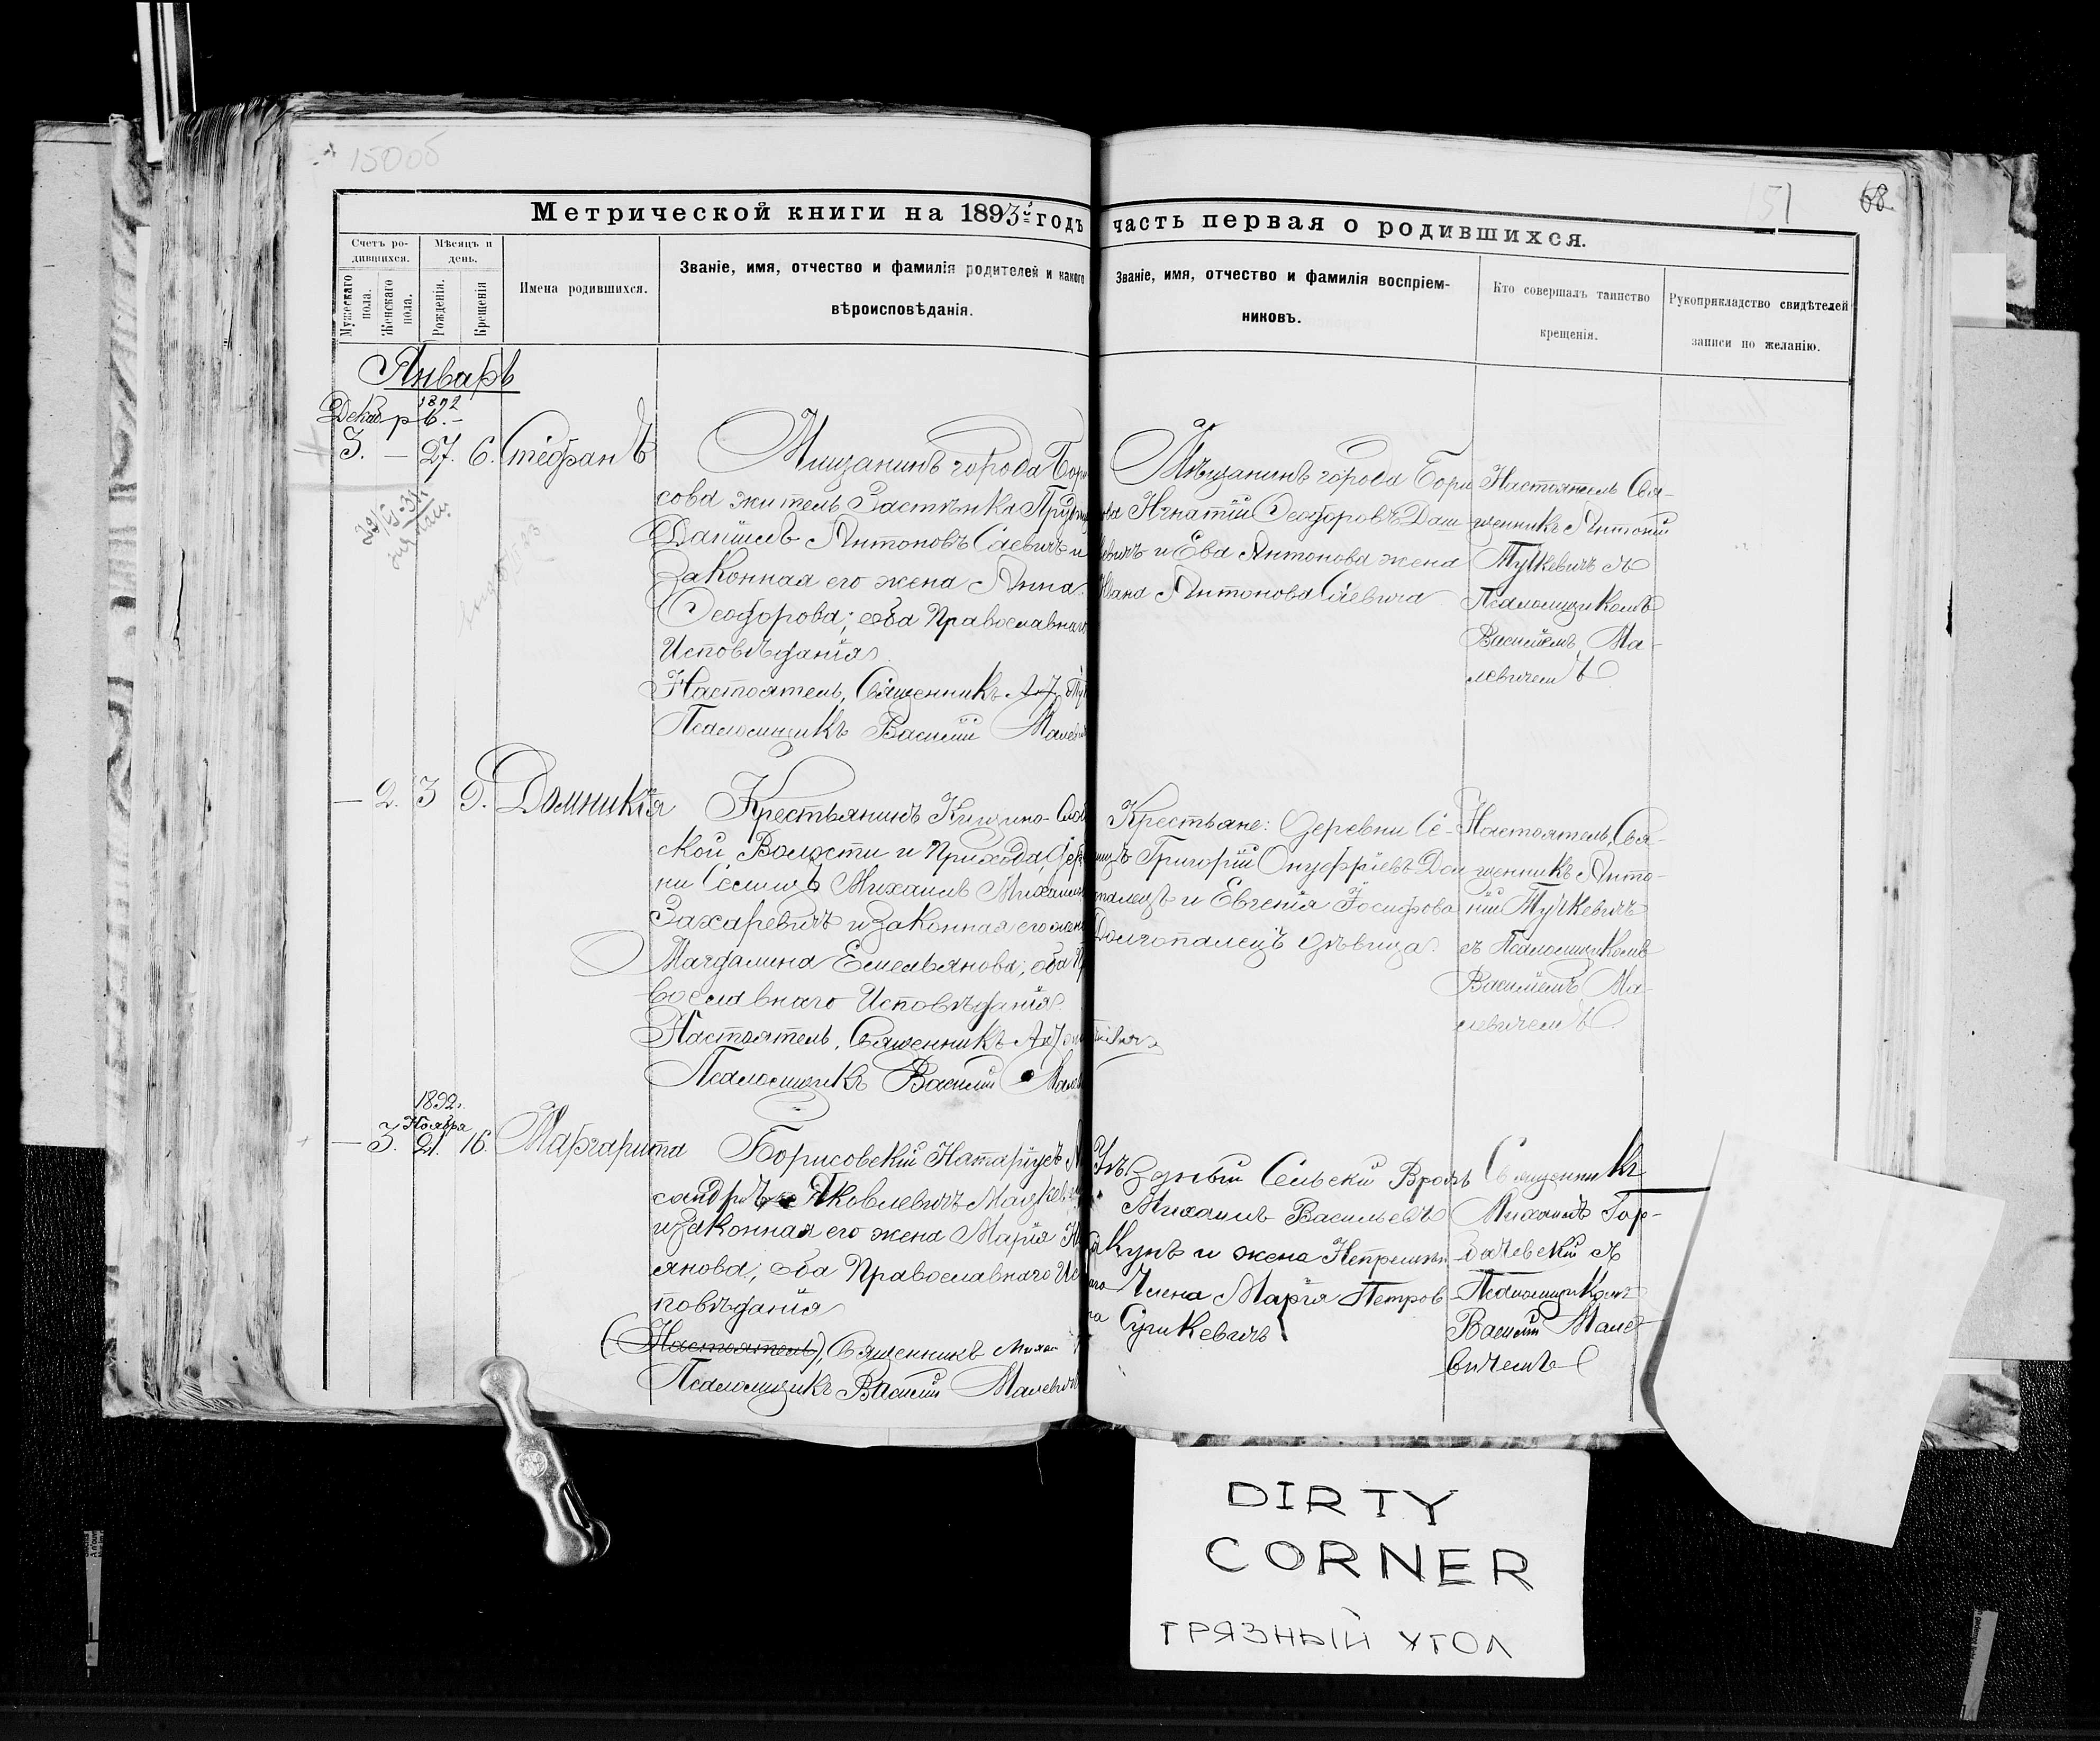 150об
151
68.
Метрической книги на 1893й годъ часть первая о родившихся.
Счетъ ро-
дившихся.
Мужескаго
пола.
Женскаго
пола.
Мѣсяцъ и
день.
Рожденія.
Крещенія
Имена родившихся.
Званіе, имя, отчество и фамилія родителей и какого
вѣроисповѣданія.
Званіе, имя, отчество и фамилія воспріем-
никовъ.
Кто совершалъ таинство
крещенія.
Рукоприкладство свидѣтелей
записи по желанію.
Январь
1892
Декабр
3. — 27. 6. Стефанъ
Мищанинъ города Бори
сова житель Застѣнка
Даніилъ Антоновъ Саевичъ и
Законная его жена Анна
Ѳеодорова; оба Православнаго
Исповѣданія
Настоятель, Священникъ
Псаломщикъ Василій Малеви
Мѣщанинъ города Бори
ова Игнатій Ѳеодоровъ Даш
кевичъ и Ева Антонова жена
Ивана Антонова Саевича
Настоятель Свя-
щенникъ Антоній
Тучкевичъ съ
Псаломщикомъ
Василіемъ Ма-
левичемъ
— 2. 3 9. Домникія
Крестьянинъ Кищино-Слоб
ской Волости и Прихода, Дерев
ни Селищъ Михаилъ Михаиловъ
Захаревичъ и законная его жена
Магдалина Емельянова; оба П
вославнаго Исповѣданія
Настоятель, Священникъ
Псаломщикъ Василій Мале
Крестьяне: Деревни Се-
лищъ Григорій Онуфріевъ Дол
гопалецъ и Евгенія Іосифова
Долгопалецъ дѣвица.
Настоятель, Свя-
щенникъ Анто-
ній Тучкевичъ
съ Псаломщикомъ
Василіемъ Ма-
левичемъ.
1892г.
Ноября
— 3. 21. 16. Маргарита
Борисовскій Натаріусъ
сандръ Яковлевичъ
и законная его жена Марія
янова; оба Православнаго Ис
повѣданія
(Настоятель), Священникъ Миха
Псаломщикъ Василій Малевичъ
Уѣздный Сельскій Врачъ
Михаилъ Васильевъ
кунъ и жена Непремѣн
аго Члена Марія Петров
на Сушкевичъ
Священникъ
Михаилъ Гор-
бачевскій съ
Псаломщикомъ
Василій Мале
вичемъ
DIRTY
CORNER
ГРЯЗНЫЙ УГОЛ